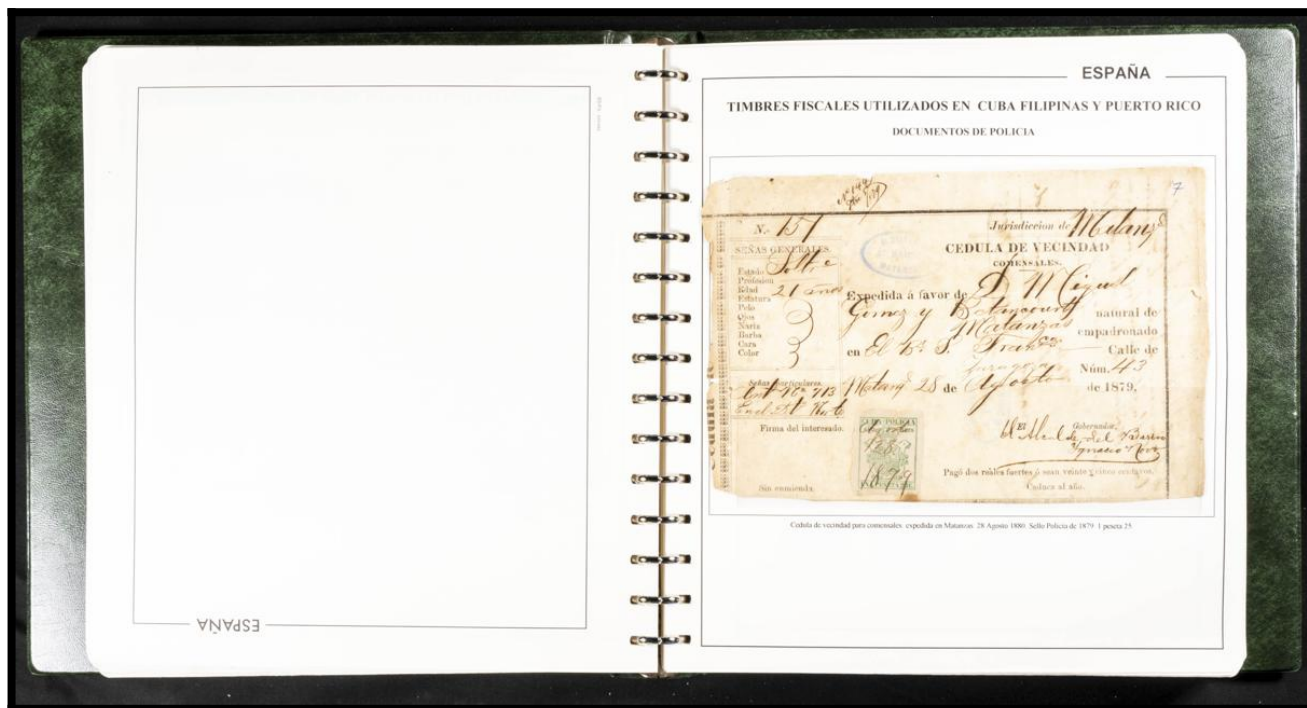 ESPAÑA
ESPAÑA
TIMBRES FISCALES UTILIZADOS EN CUBA FILIPINAS Y PUERTO RICO
DOCUMENTOS DE POLICIA
7
N.º 151
Jurisdiccion de Matanzs
SEÑAS GENERALES.
CEDULA DE VECINDAD
COMENSALES.
Estado Solto
Profesion
Edad 21 años
Estatura
Pelo
Ojos
Nariz
Barba
Cara
Color
Expedida á favor de D Miguel
Gomez y Betancourt natural de
Matanzas empadronado
en El Bo S. Franco Calle de
Núm. 43
Señas particulares.
Matanzs 28 de Agosto de 1879.
Firma del interesado.
CUBA POLICIA
1879
El Gobernador,
El Alcalde del Barrio
Ignacio
Pagó dos reales fuertes ó sean veinte y cinco centavos.
Sin enmienda.
Caduca al año.
Cedula de vecindad para comensales, expedida en Matanzas 28 Agosto 1880. Sello Policia de 1879 1 peseta 25